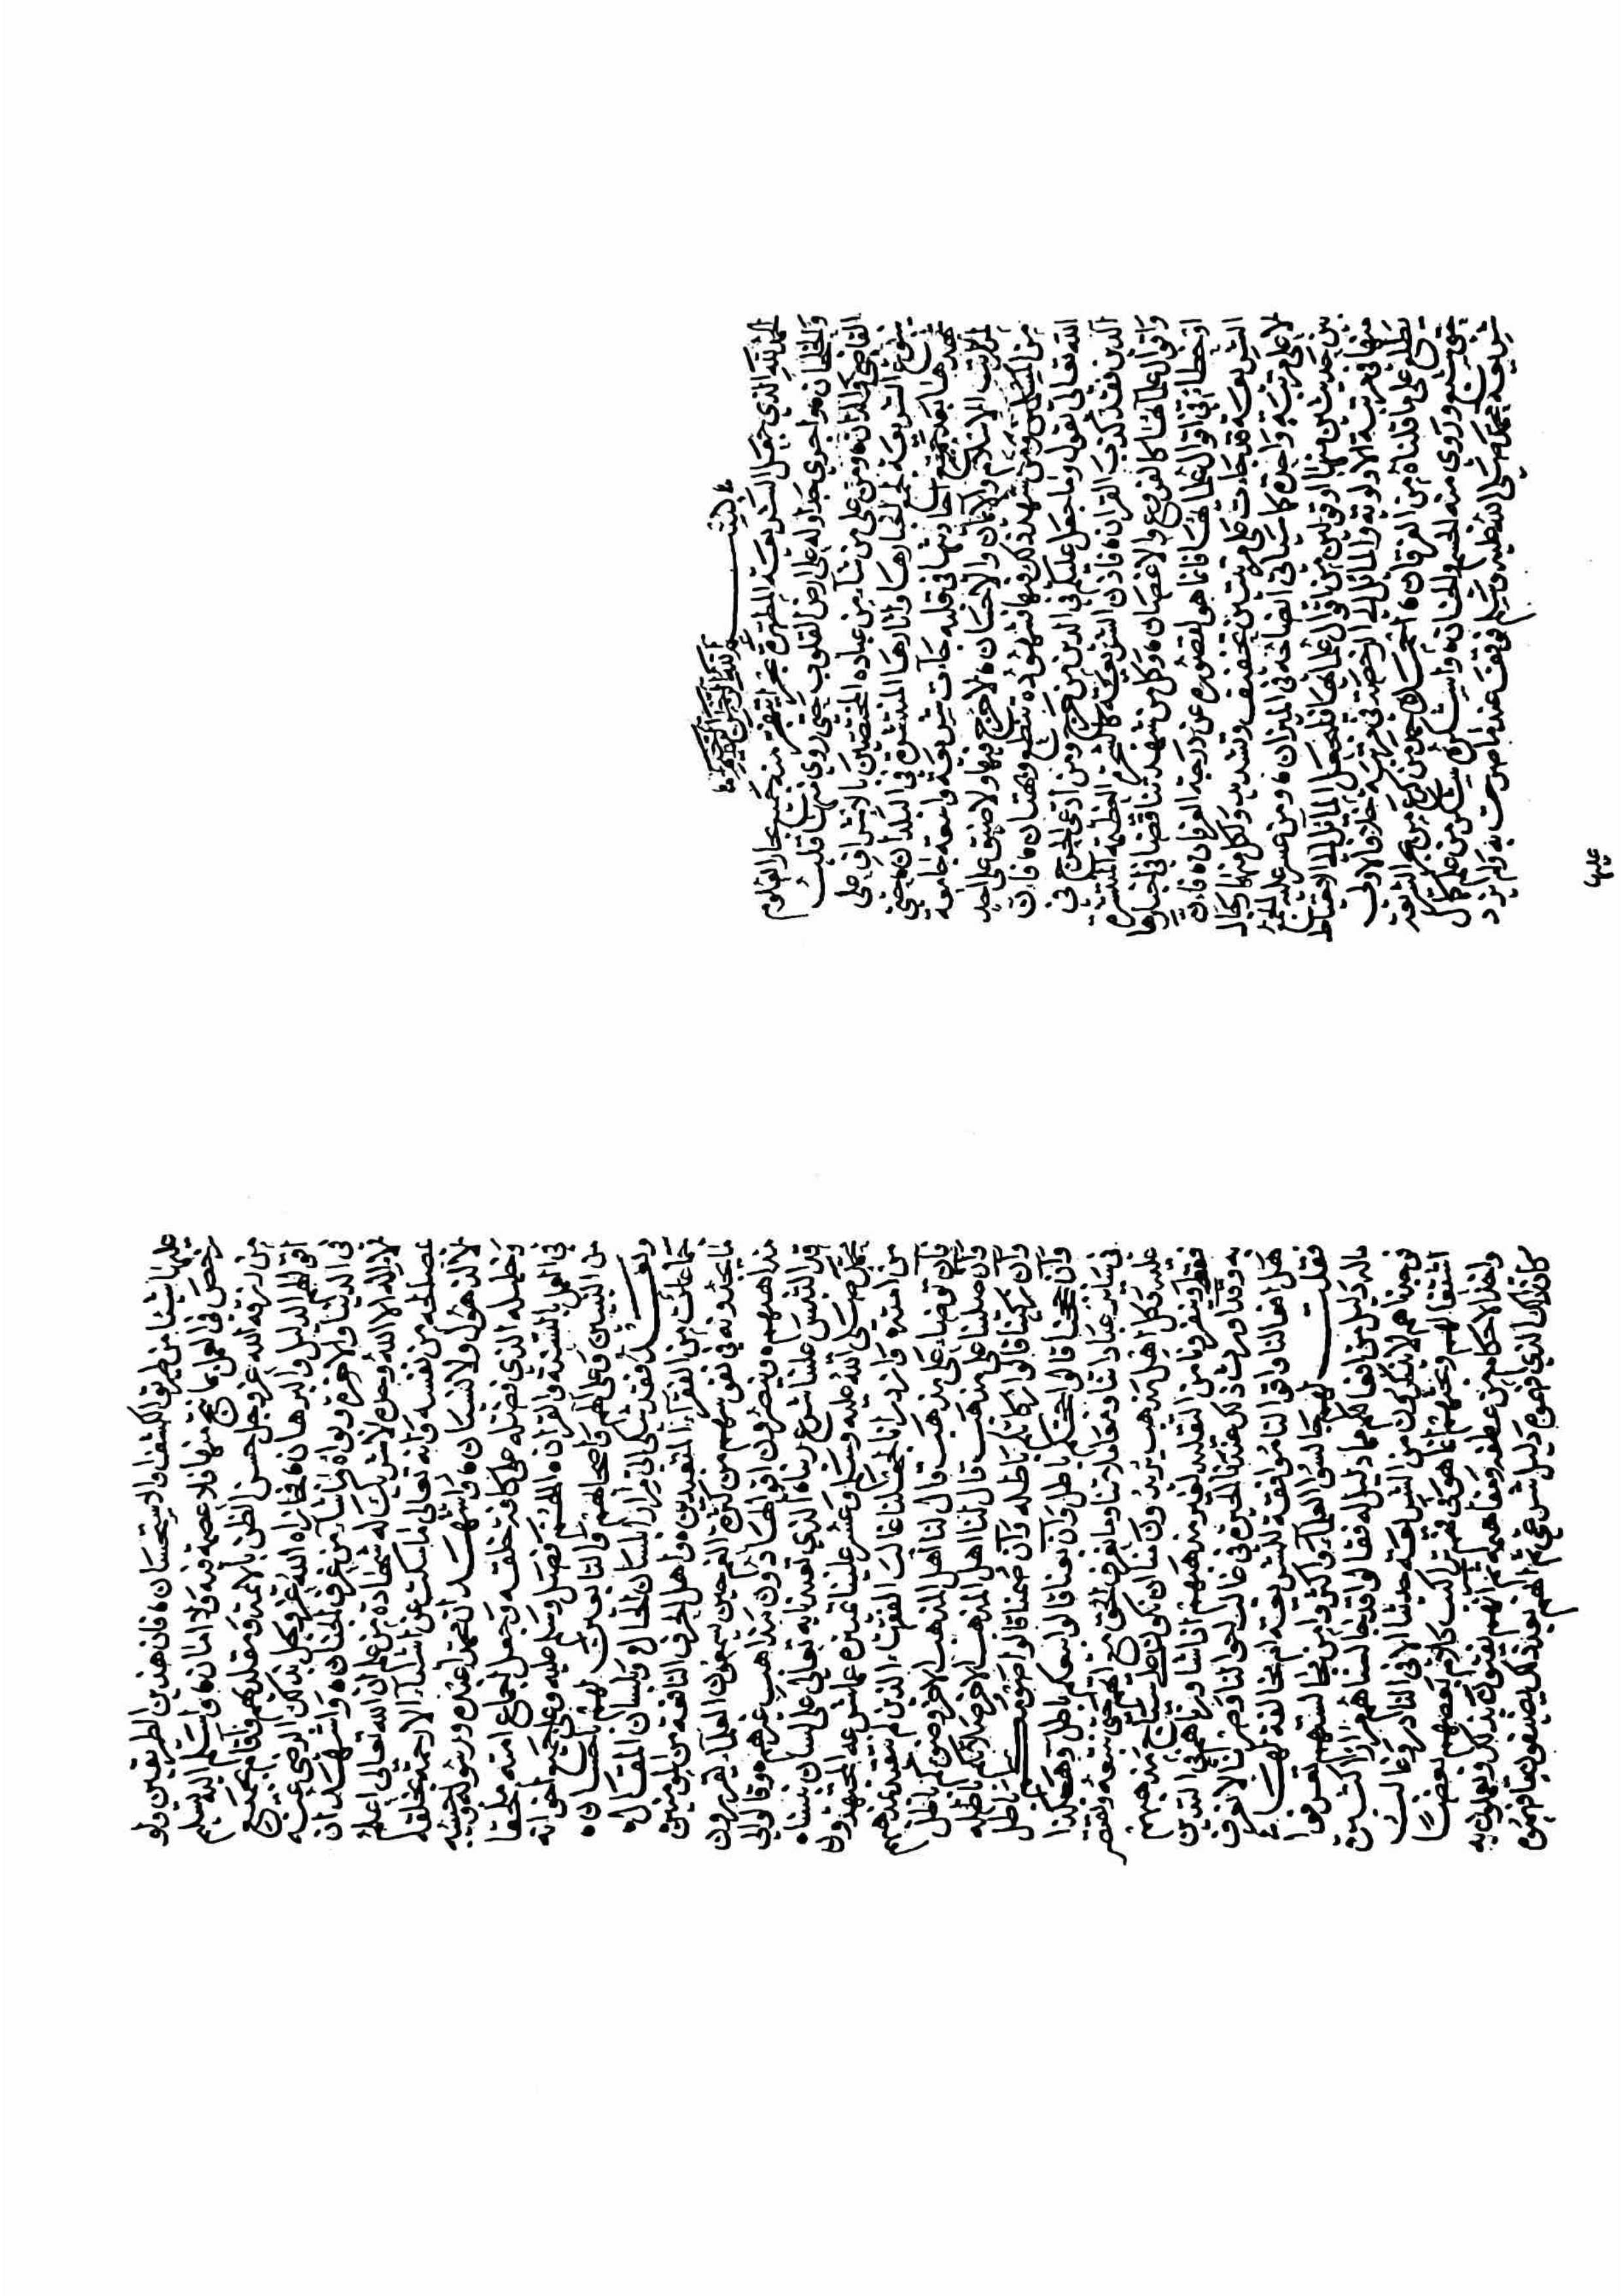 بسم
الله الرحمن الرحيم
الحمد لله الذي جعل الشريعة المطهرة بحرا يتفجر منه جميع بحار العلوم
والخلجان واجري جداوله على ارض القلوب حتى روي منها قلب
القاصي والدان ومن على من شاء من عباده المختصين بالاشراف على
ينبوع الشريعة لجميع اخبارها واثارها المنتشرة في البلدان حتى
شهدها بعد جمع احاديثها في قلبه جآت شريعة واسعة جامعة
لمراتب الاسلام والايمان والاحسان لا حرج فيها ولا ضيق على احد
من المسلمين ومن شهد ذلك فيها فشهوده تنطع وبهتان فان
الله تعالى يقول وما جعل عليكم في الدين من حرج ومن ادعى الحرج في
الدين فقد كذب القران فاذن الشريعة كالشجرة العظيمة المنتشرة
واقوال علمائها كالفروع والاغصان وكل من شهد تناقضا في اخبارها
او خطأ في اقوال علمائها فانما هو لقصوره عن درجة العرفان فان
الشريعة قد جآت على مرتبتين تخفيف وتشديد ولكل منهما رجال
لا على مرتبة واحدة كما سياتي ايضاحه في الميزان ومن عسر عليه الجمع
بين حديثين منها او قولين من اقوال علمائها فليجعل المائل الى الاحتياط
منها في مرتبة الاولوية والمائل الى الرخصة في مرتبة خلاف الاولى
يطلع على ما قلناه من الفرقان احمده حمد من كرع من بحر الشريعة
حتى شبع وروى منه الجسم والجنان واشكره شكر من علم كمال
شريعة محمد صلى الله عليه وسلم فوقف عند ما صرحت به ولم يزد
عليها
عليها شيئا من طريق الكشف والاستحسان فان هذين الطريقين ولو
رخص في العمل بما صح منها فلا عصمة فيه ولا امان واسلم اليه تسليم
من رزقه الله عز وجل حسن الظن بالائمة ومقلديهم واقام لجميع
اقوالهم الدليل والبرهان فجازاه الله عز وجل بذلك الرضى عنه
في الدنيا والاخرة وبواه ما شاء من غرف الجنان واشهد ان
لا اله الا الله وحده لا شريك له شهادة من علم ان الله تعالى اعلم
بمصلحه من نفسه وانه تعالى ما سكت عن اشيآء الا رحمة بخلقه
لا لذهول ولا نسيان واشهد ان محمدا عبده ورسوله وحبيبه
وخليله الذي فضله على كافة خلقه وجعل اجماع امته ملحقا
في العمل بالسنة والقران اللهم فصل وسلم عليه وعلى جميع اخوانه
من النبيين وعلى الهم واصحابهم والتابعين لهم باحسان
وبعد فقد شكى الي مرارا بلسان الحال وبلسان المقال
جماعات من الفقراء المتعبدين واهل الحرف النافعة من المومنين
ما يجدونه في نفوسهم من كثرة الحرج حين يسمعون العلماء يقررون
مذاهبهم وينصرون اقوالها دون مذاهب غيرهم وقالوا لي
قد التبس علينا شرع ربنا الذي تعبدنا به تعالى على لسان نبيناه
محمد صلى الله عليه وسلم وعسر علينا تمييزه عما شرعه المجتهدون
من امته وازدرانا لجهلنا غالب الفقهاء الذين لم نتقيد بمذهبهم
فان توضانا على مذهب قال لنا اهل المذهب الاخر وضوءكم باطل
وان صلينا على مذهب قال لنا اهل المذهب الاخر صلاتكم باطلة
وان زكينا قالوا زكاتكم باطلة وان صمنا قالوا صومكم باطل
وان حججنا قالوا حجكم باطل وان بعنا قالوا بيعكم باطل وهكذا
في سائر عباداتنا ومعاملاتنا وما نعرف الحق مع ايهم حتى نتبعه ونقتصر
عليه وكل اهل مذهب يريدون منا ان نكون من اتباع مذهبهم
فقط وينفرونا من التقليد لغير مذهبهم اذا شاورناهم في التدين
به وقد اورث ذلك عندنا الحيرة في غالب احوالنا فصرنا لا نعرف
هل افعالنا واقوالنا موافقة للشريعة ام مخالفة لها
فقلت لهم جالسوا العلماء واكثروا من مجالستهم يعرفوا
ما له دليل من افعالكم مما لا دليل له فقالوا قد جالسناهم ازمانا كثيرة
فوجدناهم لا يذكرون من الشريعة حديثا الا في النادر وغالب
اشتغالهم وبحثهم انما هو في فهم تراكيب كلام بعضهم بعضا
واخذ الاحكام من عطفه ومفاهيمه ثم انهم يفتون بذلك ويعملون به
كان ذلك الذي فهموه دليل شرعي ثم انهم بعد ذلك يضيفون ما فهموه